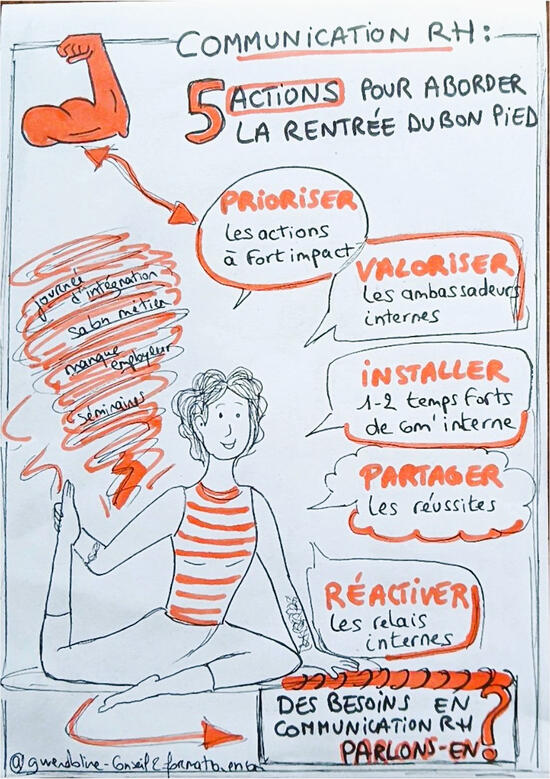 COMMUNICATION RH :
5 ACTIONS POUR ABORDER
LA RENTRÉE DU BON PIED
PRIORISER
Les actions
à fort impact
VALORISER
Les ambassadeurs
internes
INSTALLER
1-2 temps forts
de com' interne
PARTAGER
Les réussites
RÉACTIVER
Les relais
internes
journée
d'intégration
salon métier
marque
employeur
séminaires
DES BESOINS EN
COMMUNICATION RH
PARLONS-EN ?